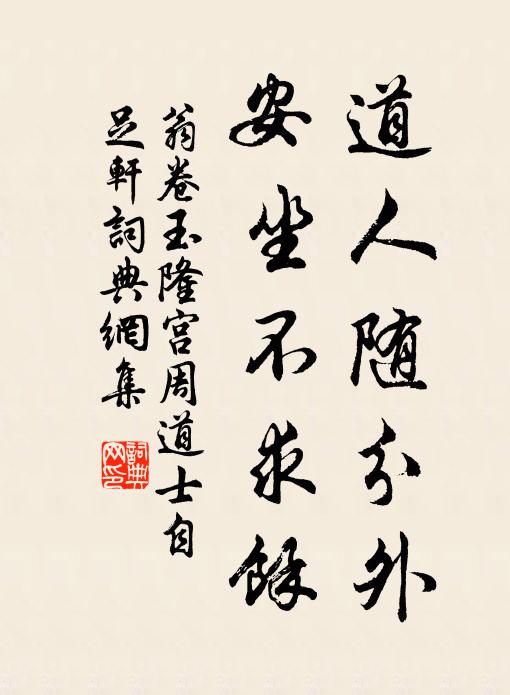 道人随分外
安坐不求餘
翁卷玉隆宫周道士自
足軒詞典網集
詞典
网印